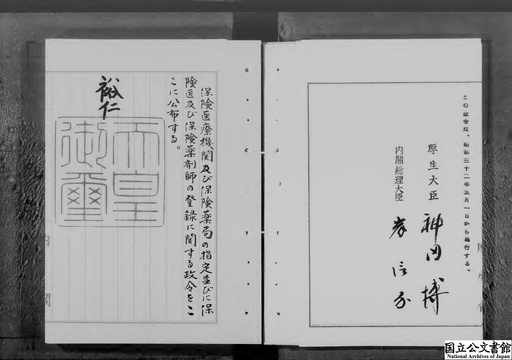 この政令は、昭和三十二年五月一日から施行する。
厚生大臣 神田博
内閣総理大臣 岸信介
保険医療機関及び保険薬局の指定並びに保
険医及び保険薬剤師の登録に関する政令をこ
こに公布する。
裕仁
天皇
御璽
国立公文書館
National Archives of Japan